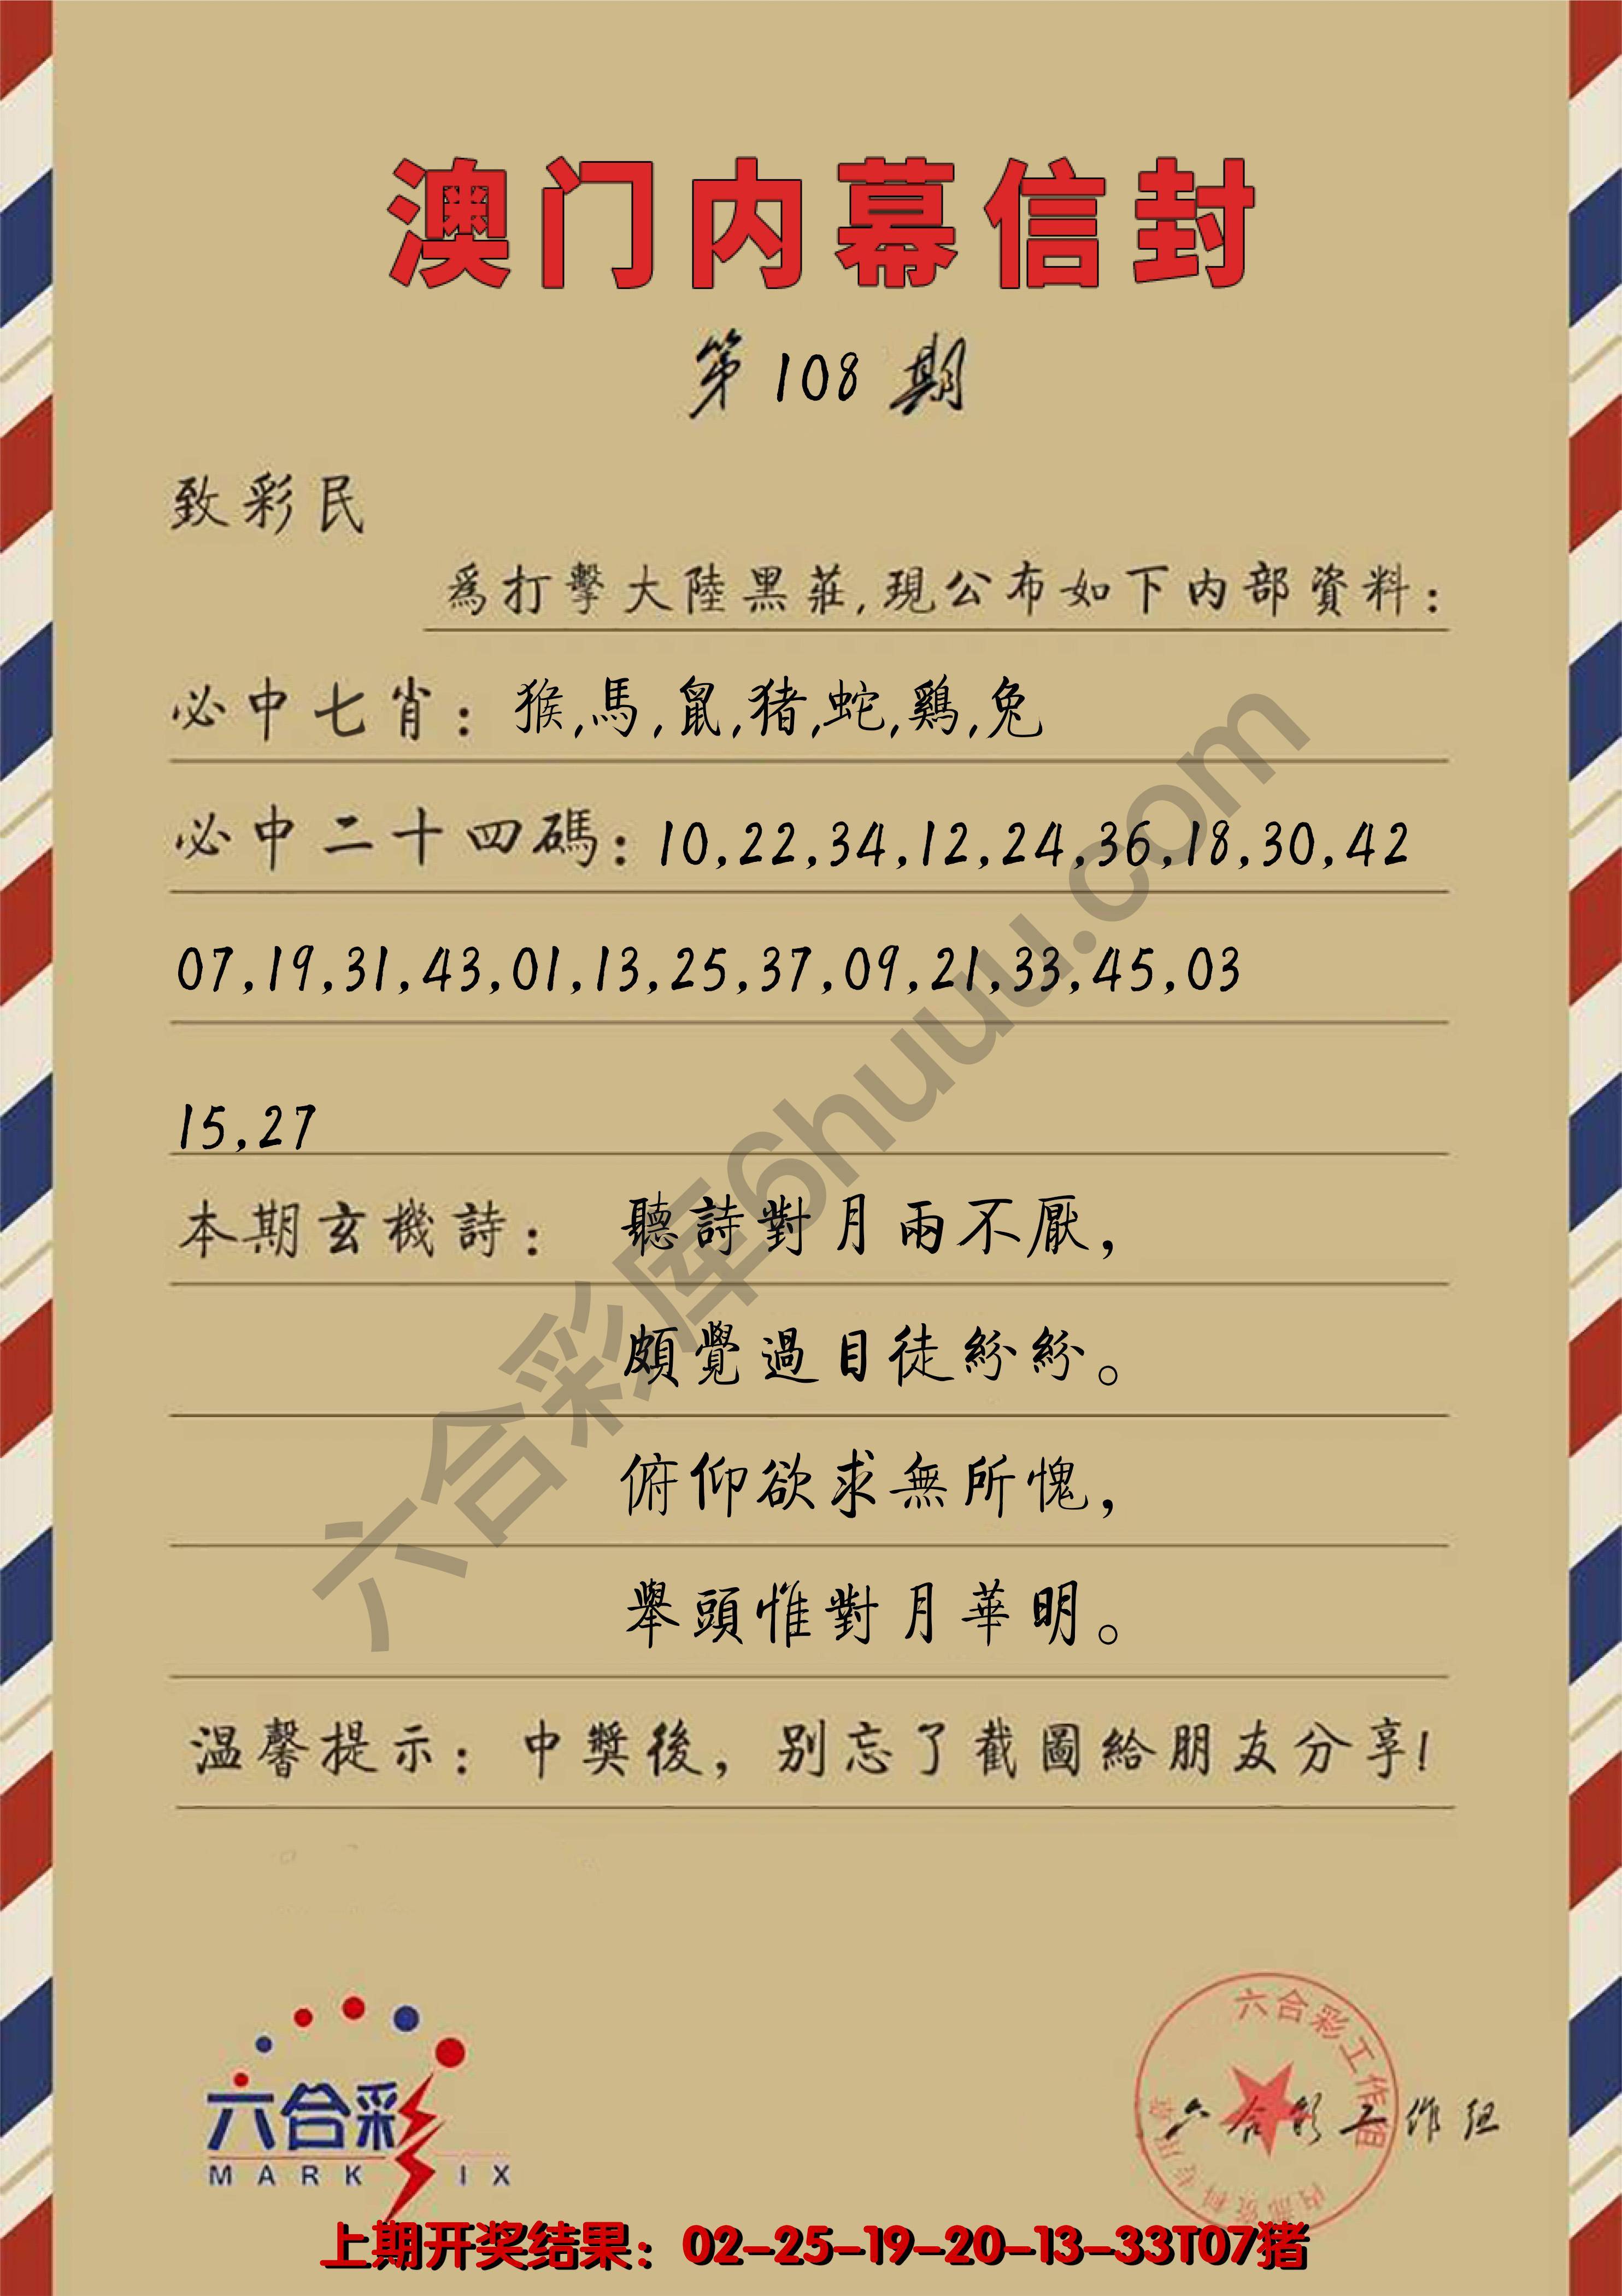 澳门内幕信封
第108期
致彩民
為打擊大陸黑莊,現公布如下内部資料:
必中七肖: 猴,馬,鼠,猪,蛇,鷄,兔
必中二十四碼: 10,22,34,12,24,36,18,30,42
07,19,31,43,01,13,25,37,09,21,33,45,03
15,27
本期玄機詩: 聽詩對月兩不厭,
頗覺過目徒紛紛。
俯仰欲求無所愧,
舉頭惟對月華明。
温馨提示: 中獎後, 别忘了截圖給朋友分享!
六合彩库6huuu.com
六合彩
MARK SIX
六合彩工作组
内部资料专用章
六合彩工作组
上期开奖结果: 02-25-19-20-13-33T07猪